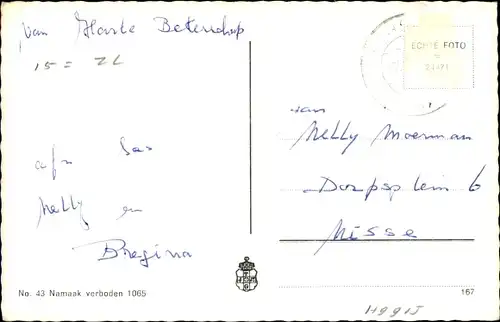 van Harte Beterschap
15 = 
ECHTE FOTO
aan
Nelly Moerman
Dorpsplein 6
Nisse
afz Bas
Nelly en
Bregina
No. 43 Namaak verboden 1065
167
H99IJ